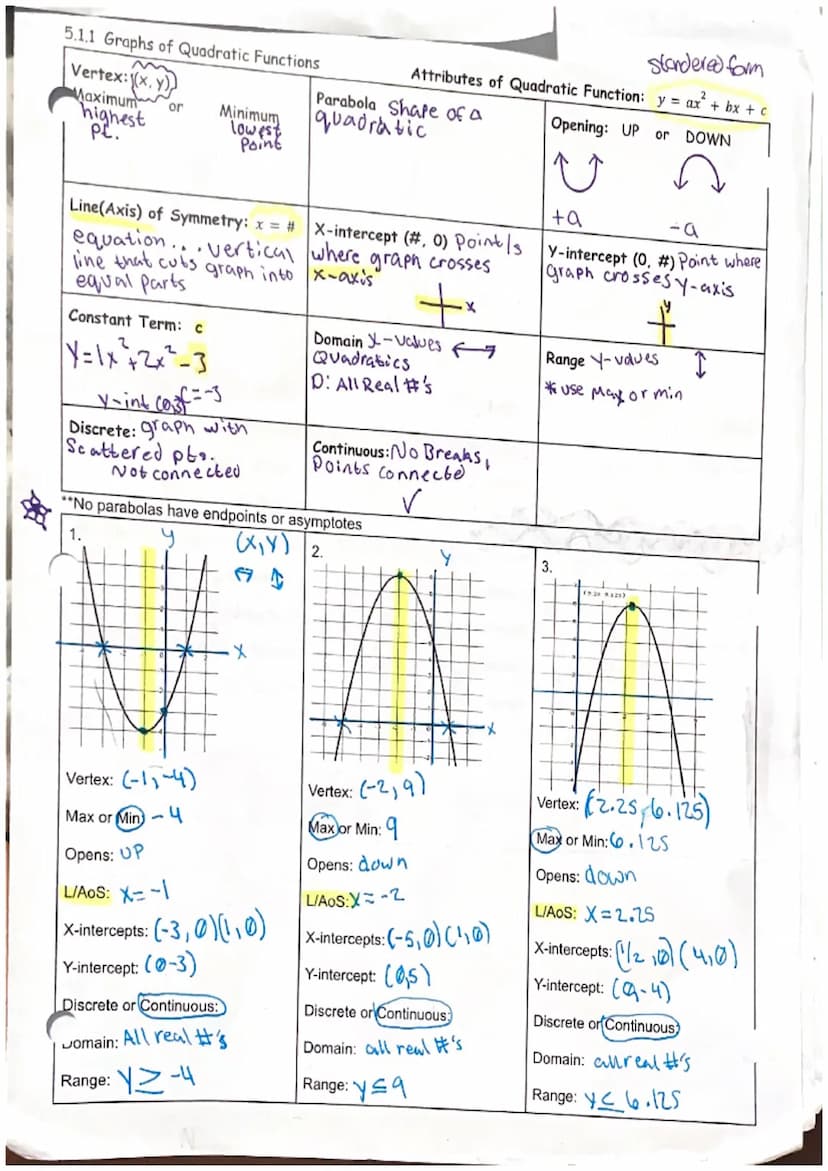 5.1.1 Graphs of Quadratic Functions
standered form
Attributes of Quadratic Function: y = ax² + bx + c
Vertex: (x, y)
Maximum or Minimum
highest pt.
lowest Point
Parabola Shape of a
quadratic
Opening: UP or DOWN
+a -a
Line(Axis) of Symmetry: x = #
equation... vertical
line that cuts graph into
equal parts
X-intercept (#, 0) Point/s
where graph crosses
x-axis
x
Y-intercept (0, #) Point where
graph crosses y-axis
y
Constant Term: c
y=1x²+2x²-3
c=-3
y-int (0,-3)
Domain x-values
Quadratics
D: All Real #'s
Range y-values
* use max or min
Discrete: graph with
Scattered pts.
Not connected
Continuous: No Breaks,
Points connected
**No parabolas have endpoints or asymptotes
1.
y
(x,y)
x
Vertex: (-1,-4)
Max or Min -4
Opens: UP
L/AoS: x=-1
X-intercepts: (-3,0)(1,0)
Y-intercept: (0-3)
Discrete or Continuous:
Domain: All real #'s
Range: y≥-4
2.
y
x
Vertex: (-2,9)
Max or Min: 9
Opens: down
L/AoS: x=-2
X-intercepts: (-5,0)(1,0)
Y-intercept: (0,5)
Discrete or Continuous:
Domain: all real #'s
Range: y≤9
3.
Vertex: (2.25,6.125)
Max or Min: 6.125
Opens: down
L/AoS: X=2.25
X-intercepts: (1/2,0)(4,0)
Y-intercept: (0,-4)
Discrete or Continuous:
Domain: all real #'s
Range: y≤6.125